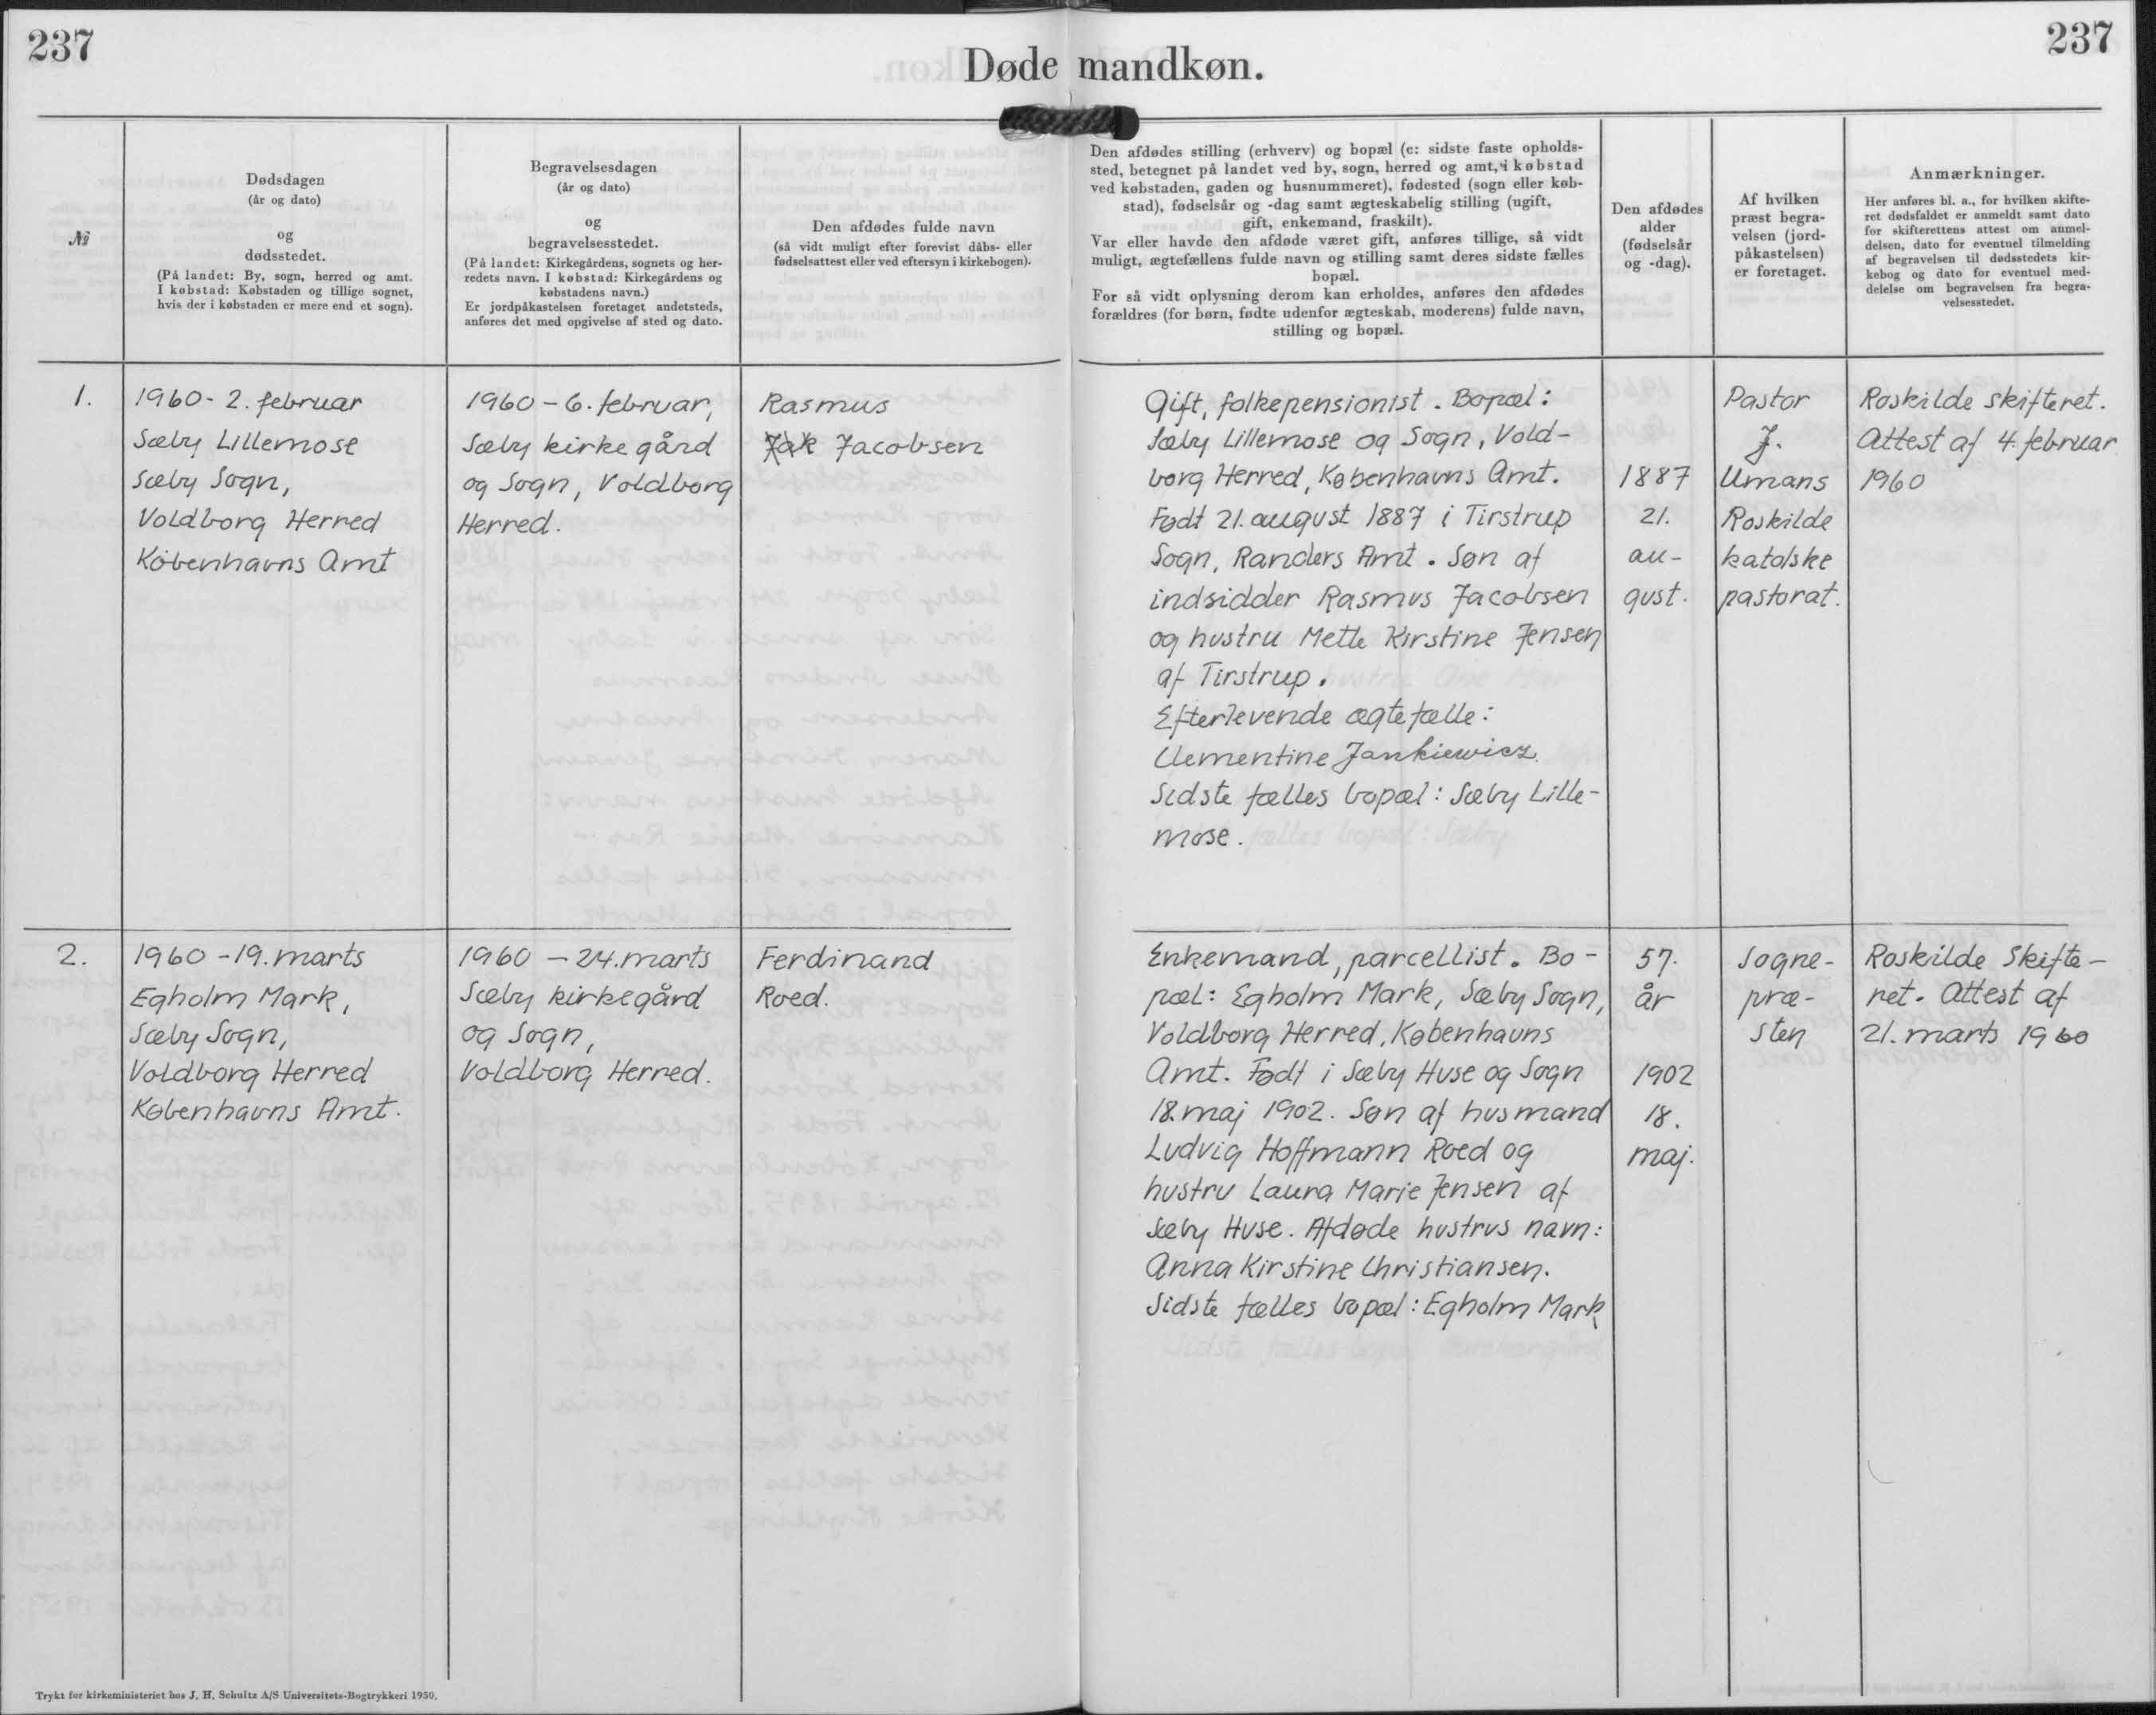 237
237
Døde mandkøn.
№
Dødsdagen
(år og dato)
og
dødsstedet.
(På landet: By, sogn, herred og amt.
I købstad: Købstaden og tillige sognet,
hvis der i købstaden er mere end et sogn).
Begravelsesdagen
(år og dato)
og
begravelsesstedet.
(På landet: Kirkegårdens, sognets og her-
redets navn. I købstad: Kirkegårdens og
købstadens navn.)
Er jordpåkastelsen foretaget andetsteds,
anføres det med opgivelse af sted og dato.
Den afdødes fulde navn
(så vidt muligt efter forevist dåbs- eller
fødselsattest eller ved eftersyn i kirkebogen).
Den afdødes stilling (erhverv) og bopæl (ɔ: sidste faste opholds-
sted, betegnet på landet ved by, sogn, herred og amt, i købstad
ved købstaden, gaden og husnummeret), fødested (sogn eller køb-
stad), fødselsår og -dag samt ægteskabelig stilling (ugift,
gift, enkemand, fraskilt).
Var eller havde den afdøde været gift, anføres tillige, så vidt
muligt, ægtefællens fulde navn og stilling samt deres sidste fælles
bopæl.
For så vidt oplysning derom kan erholdes, anføres den afdødes
forældres (for børn, fødte udenfor ægteskab, moderens) fulde navn,
stilling og bopæl.
Den afdødes
alder
(fødselsår
og -dag).
Af hvilken
præst begra-
velsen (jord-
påkastelsen)
er foretaget.
Anmærkninger.
Her anføres bl. a., for hvilken skifte-
ret dødsfaldet er anmeldt samt dato
for skifterettens attest om anmel-
delsen, dato for eventuel tilmelding
af begravelsen til dødsstedets kir-
kebog og dato for eventuel med-
delelse om begravelsen fra begra-
velsesstedet.
1.
1960 - 2. februar
Sæby Lillemose
Sæby Sogn,
Voldborg Herred
Københavns Amt
1960 - 6. februar,
Sæby kirkegård
og Sogn, Voldborg
Herred.
Rasmus
Jak Jacobsen
Gift, folkepensionist. Bopæl:
Sæby Lillemose og Sogn, Vold-
borg Herred, Københavns Amt.
Født 21. august 1887 i Tirstrup
Sogn, Randers Amt. Søn af
indsidder Rasmus Jacobsen
og hustru Mette Kirstine Jensen
af Tirstrup.
Efterlevende ægtefælle:
Clementine Jankiewicz.
Sidste fælles bopæl: Sæby Lille-
mose.
1887
21.
au-
gust.
Pastor
J.
Umans
Roskilde
katolske
pastorat.
Roskilde skifteret.
Attest af 4. februar
1960
2.
1960 - 19. marts
Egholm Mark,
Sæby Sogn,
Voldborg Herred
Københavns Amt.
1960 - 24. marts
Sæby kirkegård
og Sogn,
Voldborg Herred.
Ferdinand
Roed.
Enkemand, parcellist. Bo-
pæl: Egholm Mark, Sæby Sogn,
Voldborg Herred, Københavns
Amt. Født i Sæby Huse og Sogn
18. maj 1902. Søn af husmand
Ludvig Hoffmann Roed og
hustru Laura Marie Jensen af
Sæby Huse. Afdøde hustrus navn:
Anna Kirstine Christiansen.
Sidste fælles bopæl: Egholm Mark
57.
år
1902
18.
maj.
Sogne-
præ-
sten
Roskilde Skifte-
ret. Attest af
21. marts 1960
Trykt for kirkeministeriet hos J. H. Schultz A/S Universitets-Bogtrykkeri 1950.